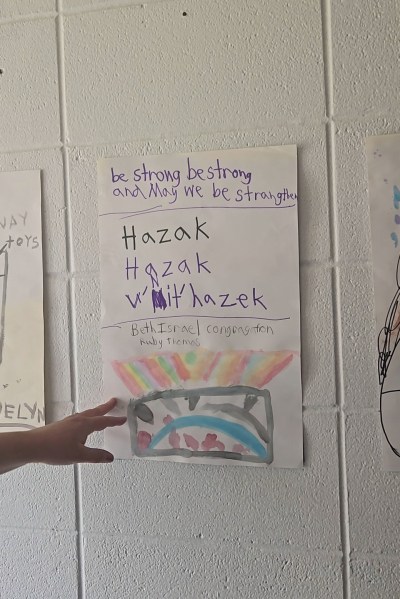 be strong be strong
and May we be strangthen
Hazak
Hazak
v'Nit'hazek
Beth Israel congregation
WAY
toys
ELYN